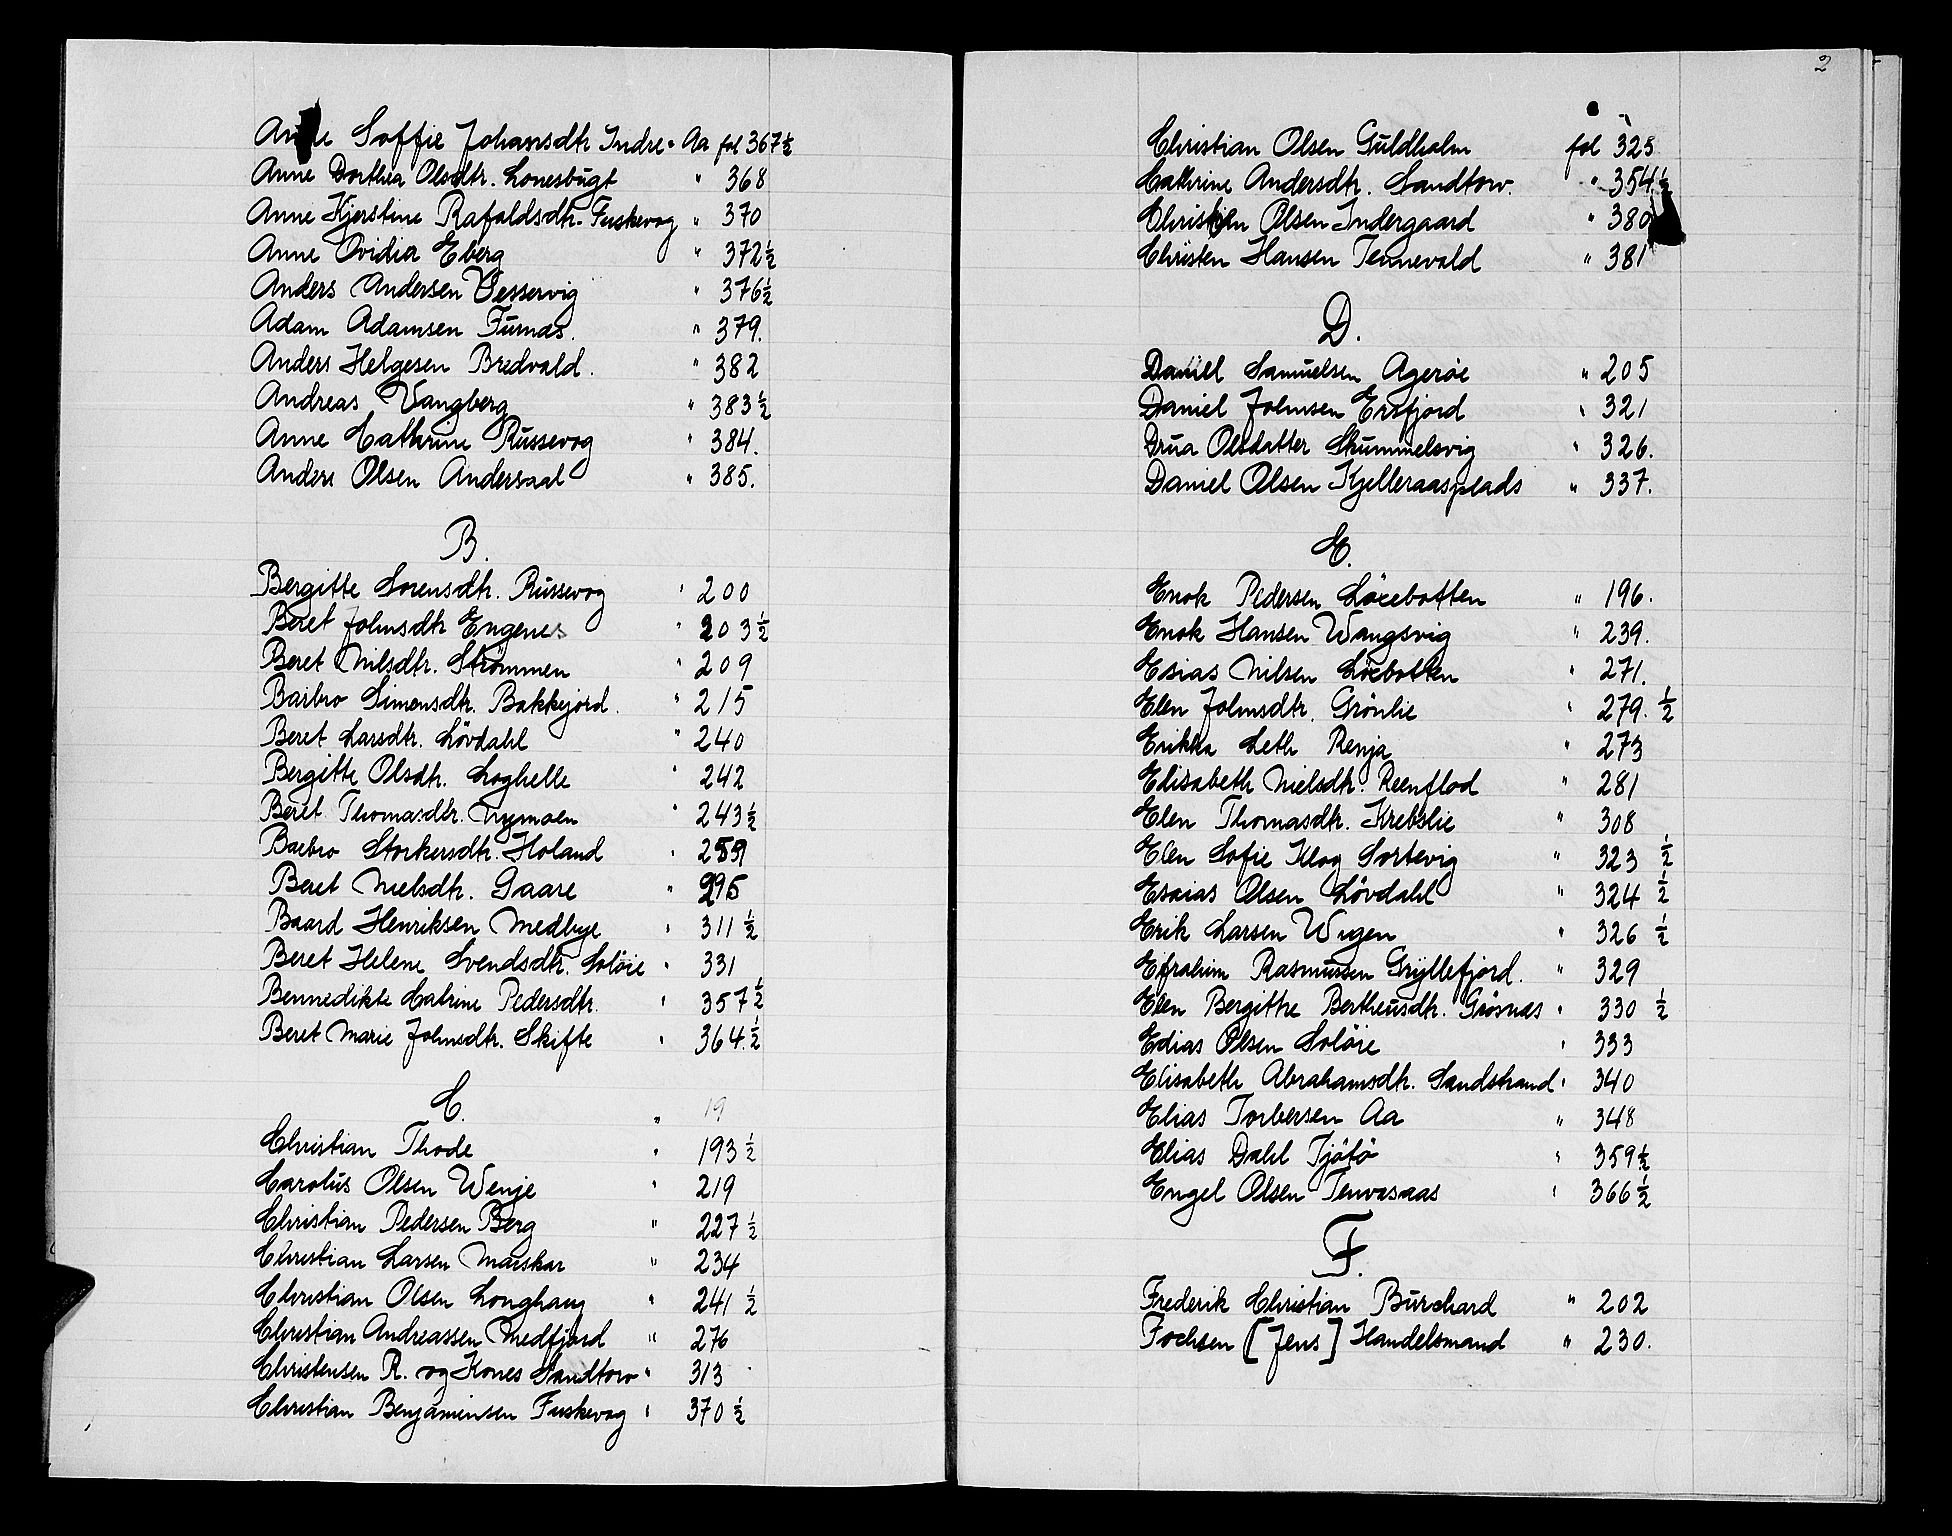 Anne Soffie Johansdtr Indre-Aa fol 367½
Anne Dorthea Olsdtr. Lonesbugt " 368
Anne Kjerstine Rafaldsdtr. Fuskevog " 370
Anne Ovidia Eberg " 372½
Anders Andersen Vesservig " 376½
Adam Adamsen Furnæs. " 379.
Anders Helgesen Bredvald. " 382
Andreas Vangberg " 383½
Anne Cathrine Russevog " 384.
Anders Olsen Andersaal " 385.
B.
Bergitte Sorensdtr. Russevog " 200
Beret Johnsdtr Engenes " 203½
Beret Nilsdtr. Strömmen " 209
Barbro Simonsdtr. Bakkejord. " 215
Beret Larsdtr. Lövdahl " 240
Bergitte Olsdtr. Loghelle " 242
Beret Thomasdtr. Nymoen " 243½
Barbro Storkersdtr. Holand " 259
Beret Nielsdtr. Gaare " 295
Baard Henriksen Medbye " 311½
Beret Helene Svendsdtr. Solöie " 331
Bennedikte Catrine Pedersdtr. " 357½
Beret Marie Johnsdtr. Skifte " 364.½
C. " 19
Christian Thode " 193½
Carolus Olsen Wenje " 219
Christian Pedersen Berg " 227½
Christian Larsen Marskar " 234
Christian Olsen Longhaug " 241½
Christian Andreassen Medfjord " 276
Christensen R. og Kones Sandtorv " 313
Christian Benjaminsen Fuskevog " 370½
2
Christian Olsen Guldholm fol 325
Cathrine Andersdtr. Sandtorv. " 354½
Christen Olsen Indergaard " 380
Christen Hansen Tennevold " 381
D.
Daniel Samuelsen Ageröe " 205
Daniel Johnsen Ersfjord " 321
Drua Olsdatter Skummelsvig " 326.
Daniel Olsen Kjelleraasplads " 337.
E.
Enok Pedersen Löcebotten " 196.
Enok Hansen Wangsvig " 239.
Esias Nilsen Löcbotten " 271.
Elen Johnsdtr. Grönlie " 279.½
Erikka Leth Renja " 273
Elisabeth Nielsdtr. Reenflod " 281
Elen Thomasdtr. Krebslie " 308
Elen Sofie Klog Sortevig " 323½
Esaias Olsen Lövdahl " 324½
Erik Larsen Wigen " 326½
Efrahim Rasmussen Gryllefjord. " 329
Elen Bergitte Bertheusdtr. Grösnæs " 330½
Edias Olsen Solöie " 333
Elisabeth Abrahamsdtr. Sandstrand " 340
Elias Torbersen Aa " 348
Elias Dahl Tjötö " 359½
Engel Olsen Tenvasaas " 366½
F.
Frederik Christian Burchard " 202
Fochsen [Jens] Handelsmand " 230.